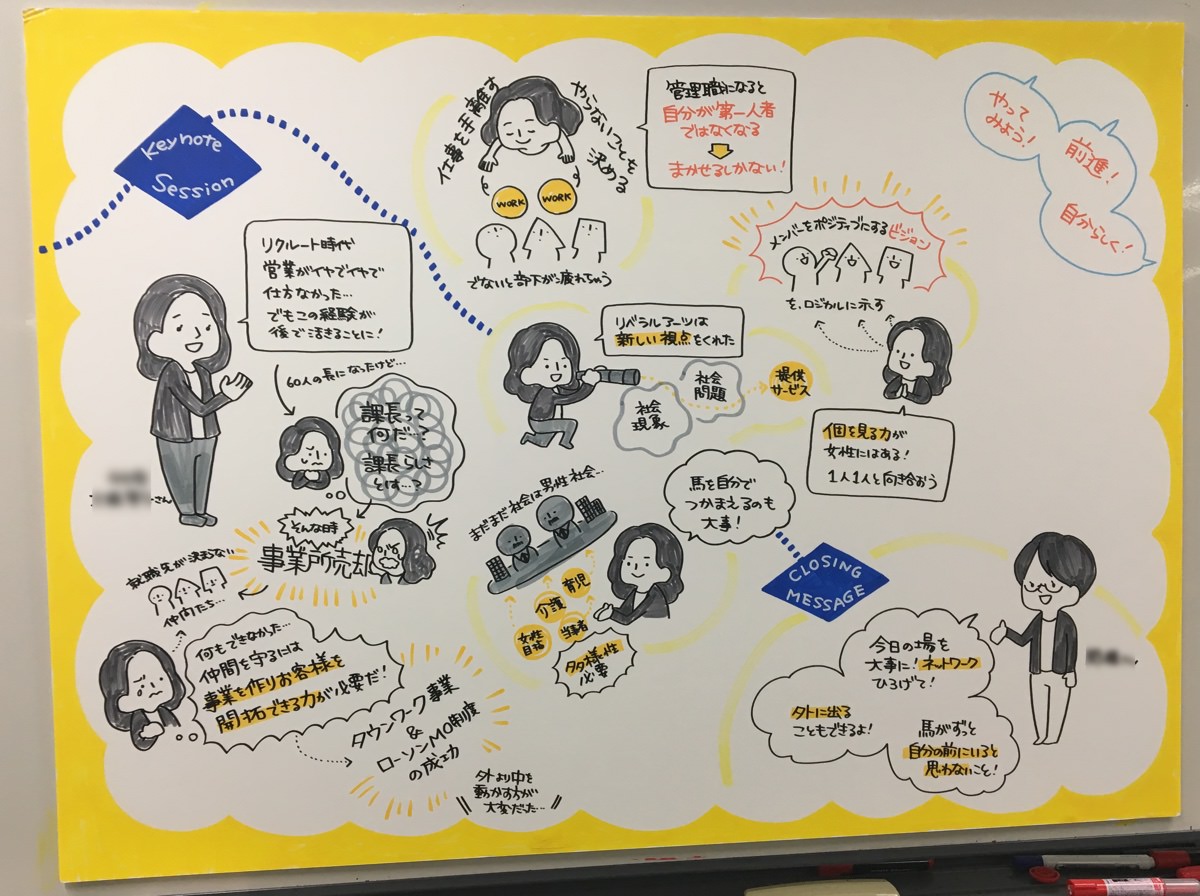 Keynote
Session
リクルート時代
営業がイヤでイヤで
仕方なかった…
でもこの経験が
後で活きることに!
さん
60人の長になったけど…
課長って
何だ…?
課長らしさ
とは…?
そんな時
事業所売却
就職先が決まらない
仲間たち…
何もできなかった…
仲間を守るには
事業を作りお客様を
開拓できる力が必要だ!
タウンワーク事業
&
ローソンMO制度
の成功
外より中を
動かす方が
大変だった…
仕事を手離す
やらないことも
決める
WORK
WORK
でないと部下が疲れちゃう
管理職になると
自分が第一人者
ではなくなる
まかせるしかない!
リベラルアーツは
新しい視点をくれた
社会
現象
社会
問題
提供
サービス
メンバーをポジティブにするビジョン
を、ロジカルに示す
個を見る力が
女性にはある!
1人1人と向き合おう
まだまだ社会は男性社会…
女性
目線
介護
育児
当事者
多様性
必要
馬を自分で
つかまえるのも
大事!
やって
みよう!
前進!
自分らしく!
CLOSING
MESSAGE
今日の場を
大事に!ネットワーク
ひろげて!
外に出る
こともできるよ!
馬がずっと
自分の前にいると
思わないこと!